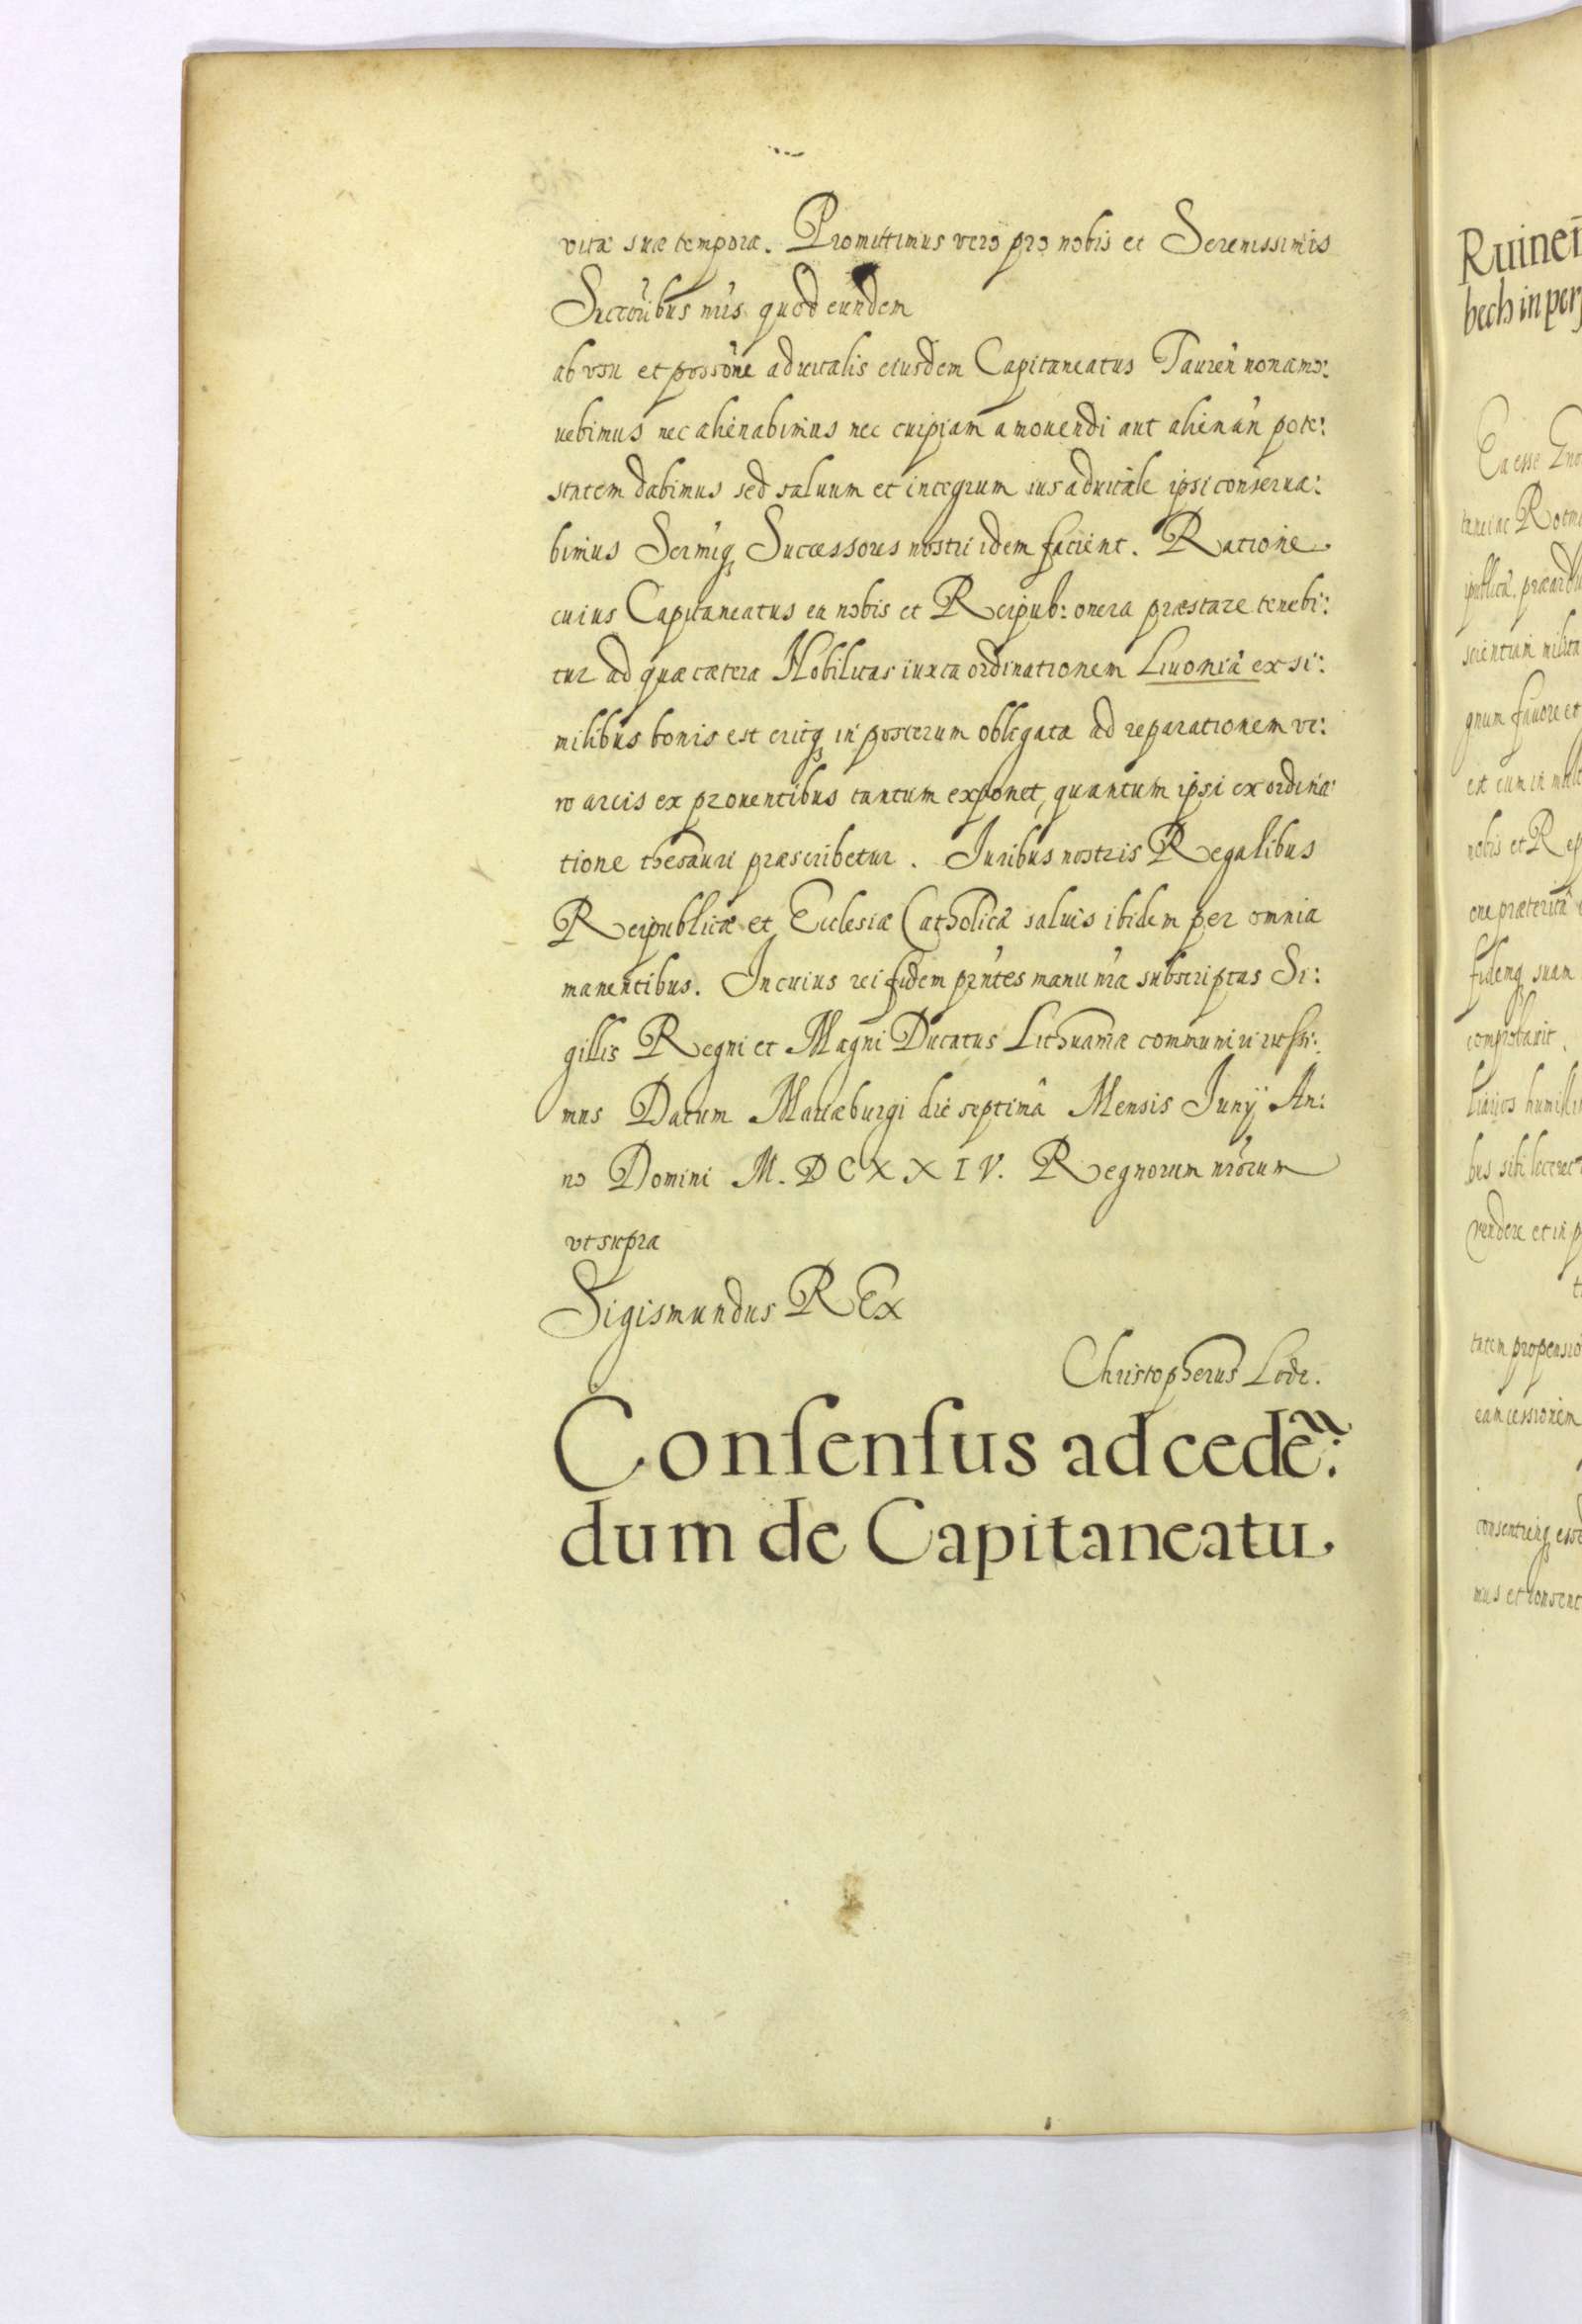 vitæ suæ tempora. Promittimus vero pro nobis et Serenissimis
Succoribus nris quod eundem
ab vsu et possōne aduitalis eiusdem Capitaneatus Tauren̄ non amo:
uebimus nec alienabimus nec cuipiam amouendi aut alienan̄ pote:
statem dabimus sed saluum et integrum ius aduitale ipsi conserua:
bimus Sermiq3 Successores nostri idem facient. Ratione
cuius Capitaneatus ea nobis et Reipub: onera præstare tenebi:
tur ad quæ cætera Nobilitas iuxta ordinationem Liuoniâ ex si:
milibus bonis est eritq3 in posterum obligata ad reparationem ve:
ro arcis ex prouentibus tantum exponet, quantum ipsi ex ordina:
tione thesauri præscribetur. Juribus nostris Regalibus
Reipublicæ et Ecclesiæ Catholicâ saluis ibidem per omnia
manentibus. In cuius rei fidem prntes manu nra subscriptas Si:
gillis Regni et Magni Ducatus Lithuaniæ communiri iussi:
mus Datum Mariæburgi die septimâ Mensis Junÿ An:
no Domini M. D C X X I V. Regnorum nrorum
vt supra
Sigismundus REx
Christopherus Lodz.
Consensus ad cedē:
dum de Capitaneatu.
Ruinen̄
bech in per
Ea esse
taneinc Rotm
ipublicâ, præard
scientiam milita
gnum fauore et
et eum in mult
nobis et Rep
one præteritâ
fidemq3 suam
comprobarit.
bus sibi liceret
vendere et in p
tatem propensio
eam cessionem
consentiendq3 esse
mus et consent